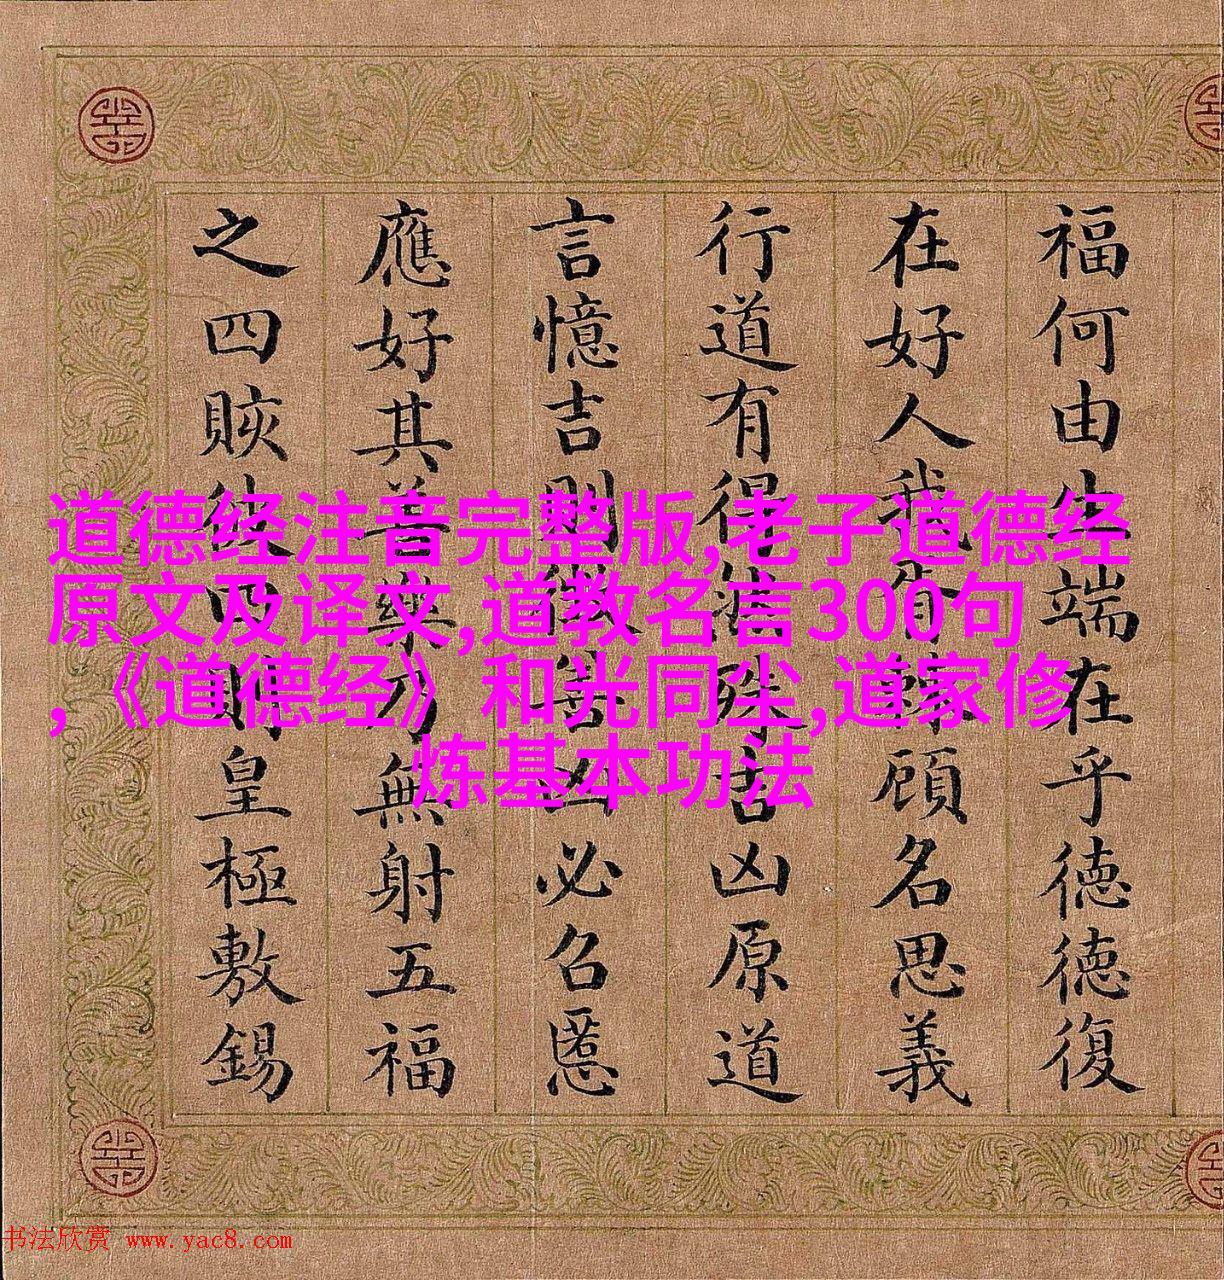 福何由生端在乎徳徳復
在好人我自顧名思義
行道有得殊吉凶原道
言憶吉則凶必召慝
應好其善樂乃無射五福
之四賅四則皇極敷錫
道德经注音完整版,老子道德经
原文及译文,道教名言300句
,《道德经》和光同尘,道家修
炼基本功法
书法欣赏 www.yac8.com